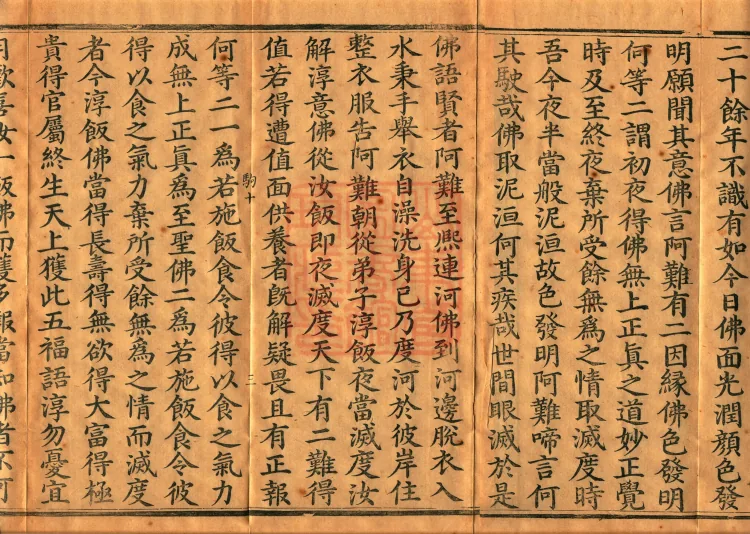 二十餘年不識有如今日佛面光潤顏色發
明願聞其意佛言阿難有二因緣佛色發明
何等二謂初夜得佛無上正眞之道妙正覺
時及至終夜棄所受餘無爲之情取滅度時
吾今夜半當般泥洹故色發明阿難啼言何
其駛哉佛取泥洹何其疾哉世間眼滅於是
佛語賢者阿難至熈連河佛到河邊脫衣入
水秉手舉衣自澡洗身已乃度河於彼岸住
整衣服告阿難朝從弟子淳飯夜當滅度汝
解淳意佛從汝飯即夜滅度天下有二難得
值若得遭值面供養者旣解疑畏且有正報
駒十 三
何等二一爲若施飯食令彼得以食之氣力
成無上正眞爲至聖佛二爲若施飯食令彼
得以食之氣力棄所受餘無爲之情而滅度
者今淳飯佛當得長壽得無欲得大富得極
貴得官屬終生天上獲此五福語淳勿憂宜
歡喜汝一飯佛而獲多報當知佛者不可